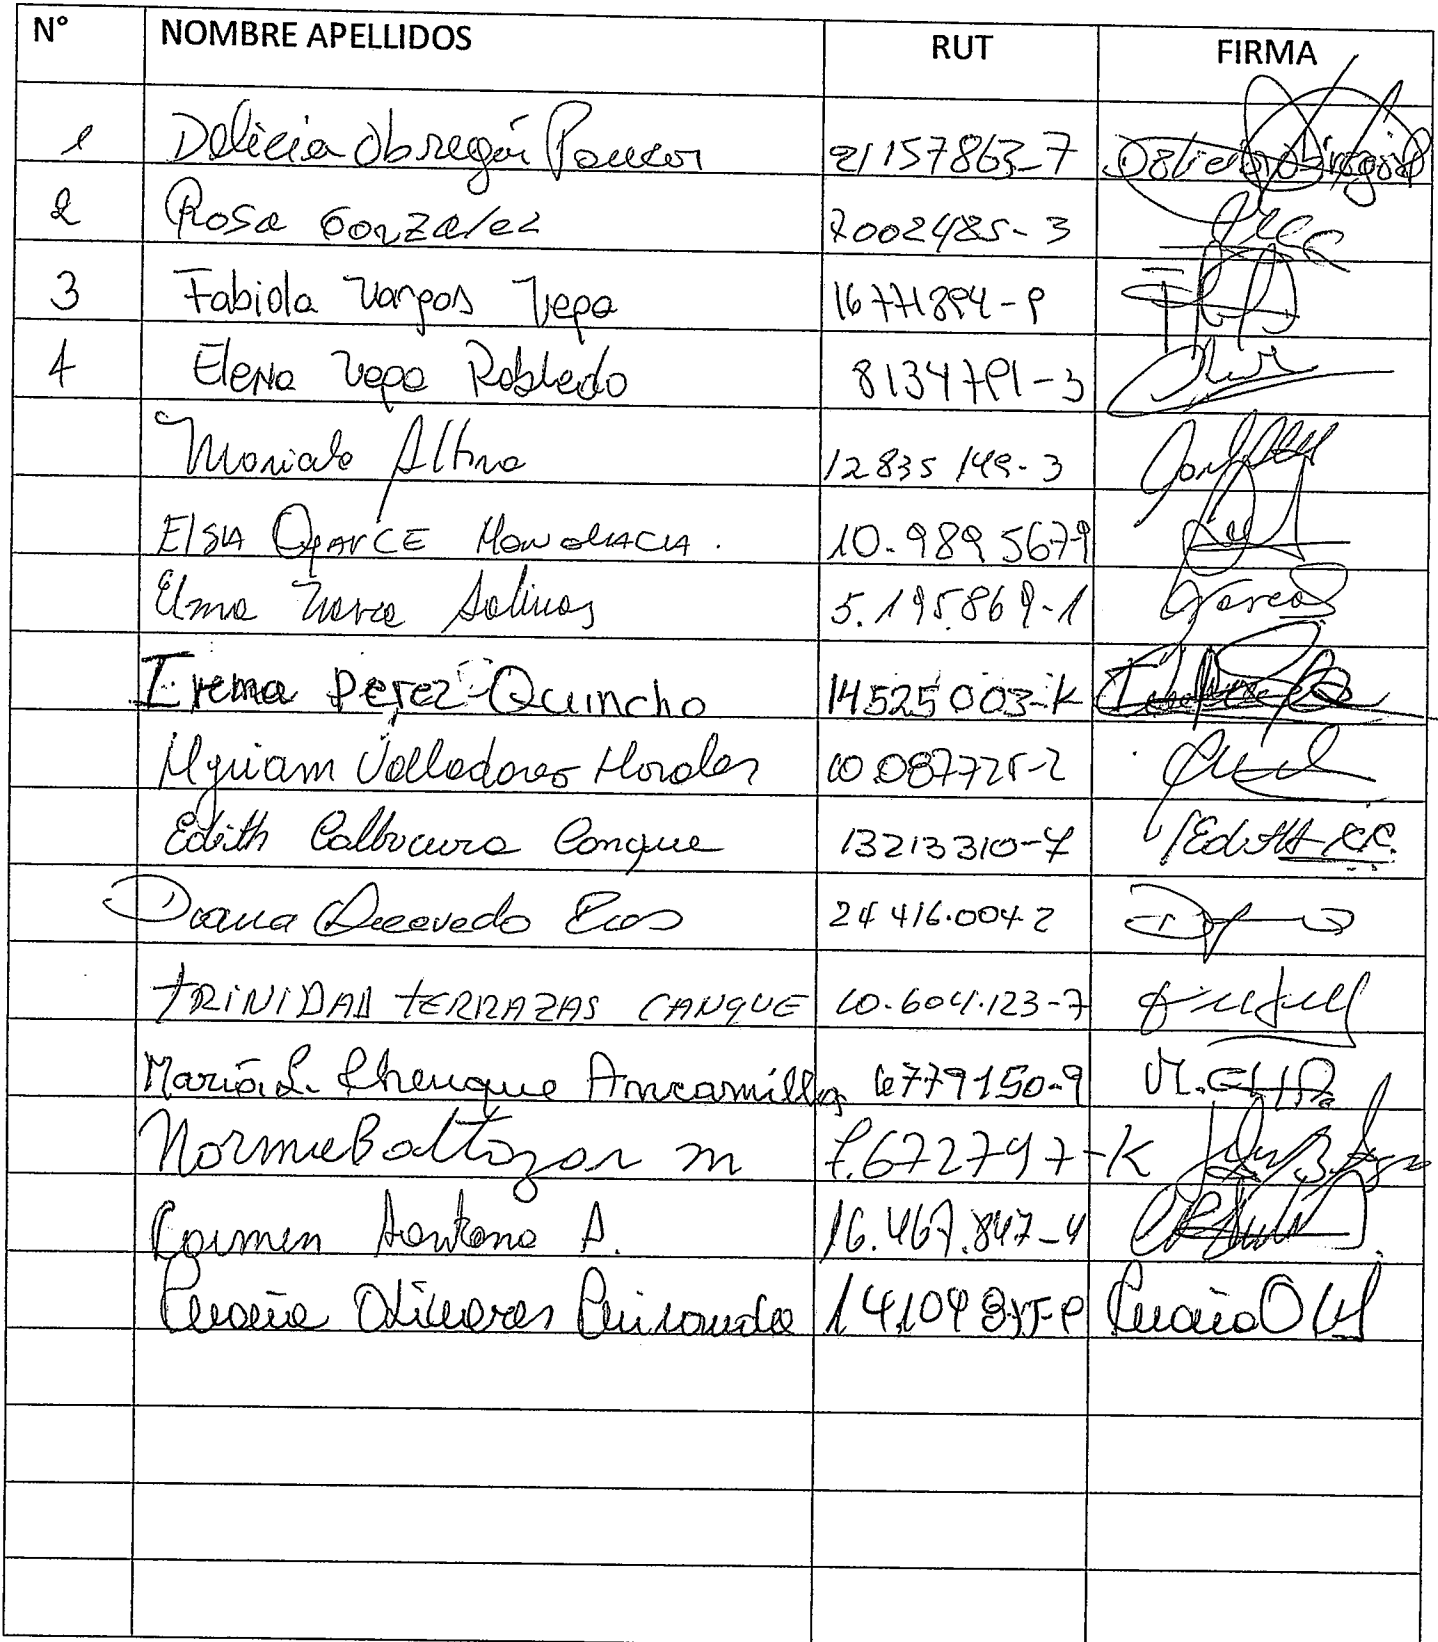 N° NOMBRE APELLIDOS RUT FIRMA
1 Delicia Obregón Paucar 21157863-7 Delicia Obregón
2 Rosa Gonzalez 7002485-3
3 Fabiola Vargas Vega 16771894-9
4 Elena Vega Robledo 8134791-3
Mariale 12835149-3
Elsa Oyarce 10.9895679
Elma Narea Salinas 5.195.869-1 Narea
Irema Perez Quincho 14525003-K
Myriam Valladares Morales 10.087725-2
Edith Calbucura Canque 13213310-7 Edith CC.
Diana Acevedo 24416.004-2
TRINIDAD TERRAZAS CANQUE 10.604.123-7
María L. Chenque Ancamilla 6779150-9 M.CH.A
Norma Baltazar M 7.672797-K
Carmen Santana A. 16.467.847-4
Olivares